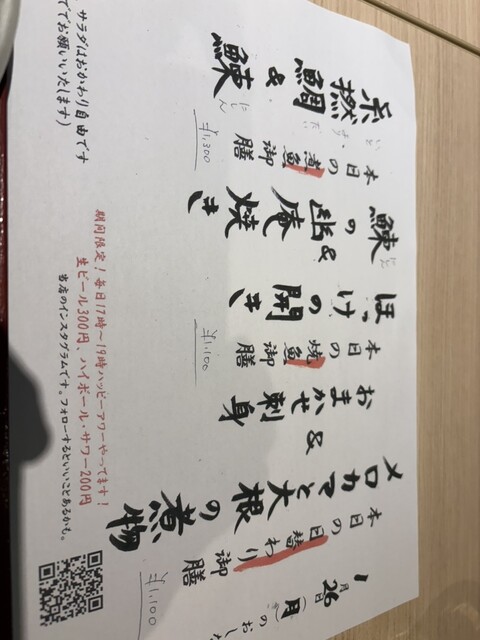 1月26日(月)のおしな
本日の日替わり御膳
メロカマと大根の煮物
&
おまかせ刺身
¥1,100
本日の焼魚御膳
ほっけの開き
&
鰊の幽庵焼き
¥1,100
本日の煮魚御膳
糸撚鯛
&
鰊
¥1,300
サラダはおかわり自由です
でお願いいたします)
期間限定！毎日17時～19時ハッピーアワーやってます！
生ビール300円、ハイボール・サワー200円
当店のインスタグラムです。フォローするといいことあるかも。